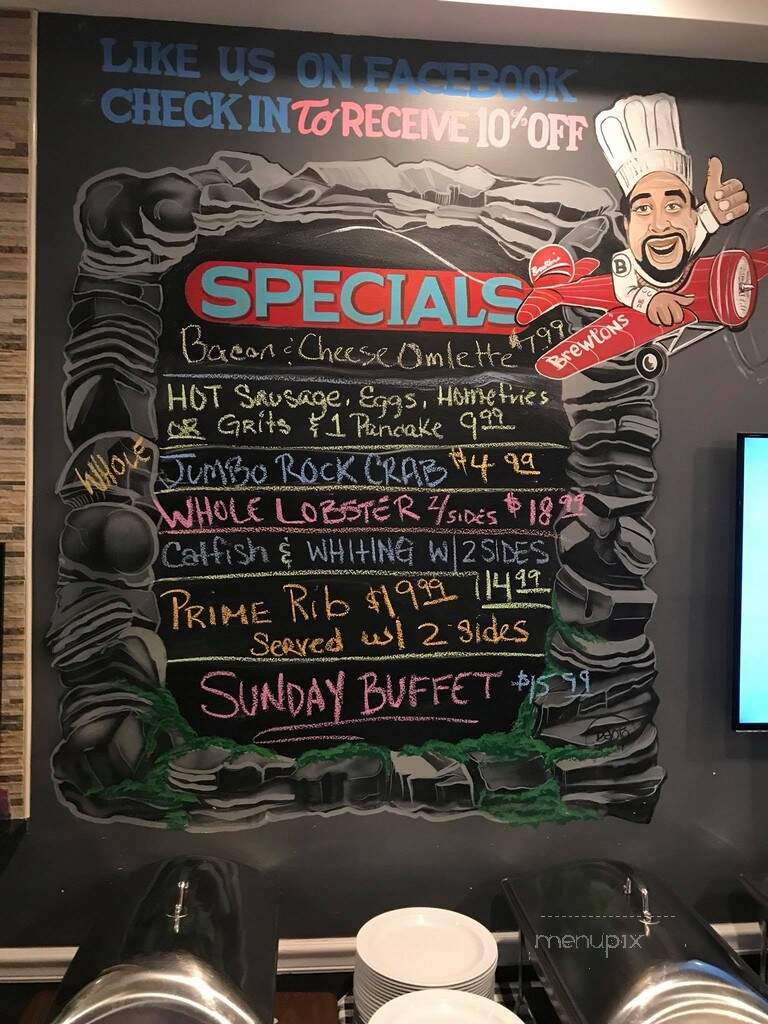 LIKE US ON FACEBOOK
CHECK IN To RECEIVE 10% OFF
SPECIALS
Bacon & Cheese Omlette $7.99
HOT Sausage, Eggs, Homefries
OR Grits & 1 Pancake 9.99
WHOLE JUMBO ROCK CRAB $4.99
WHOLE LOBSTER 4/SIDES $18.99
Catfish & WHITING W/2 SIDES
$14.99
PRIME Rib $19.99
Served w/ 2 sides
SUNDAY BUFFET $15.99
B
Brewton's
menupix